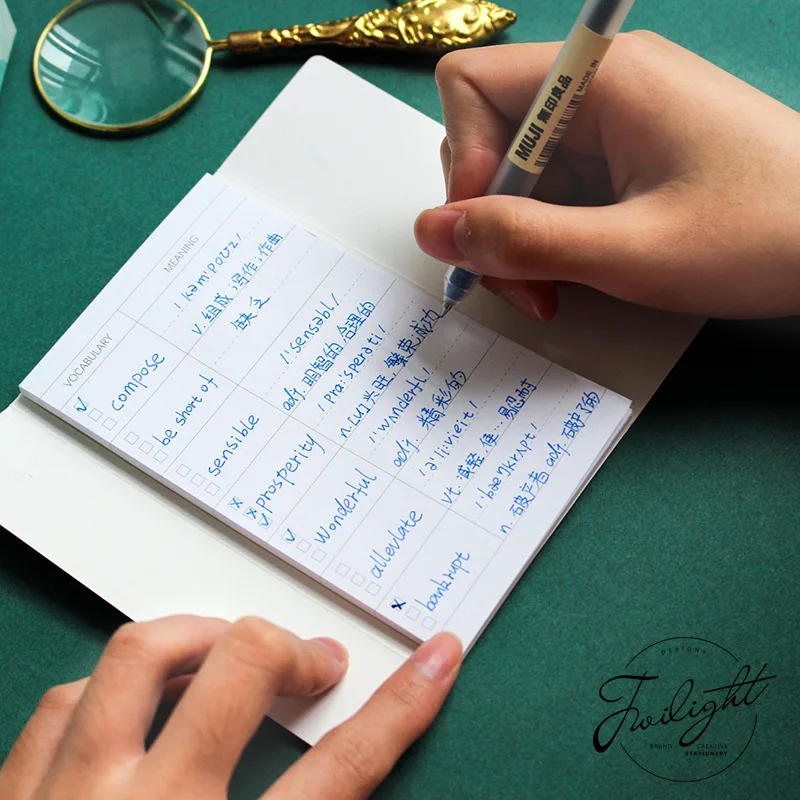 MUJI 無印良品
MADE IN
VOCABULARY
MEANING
compose
/.kəm'pəʊz/
v. 组成,写作,作曲
be short of
缺乏
sensible
/'sensəbl/
adj. 明智的,合理的
prosperity
/prɑ:'sperəti/
n.[U] 兴旺 繁荣 成功
wonderful
/'wʌndərfl/
adj. 精彩的
alleviate
/ə'li:vieit/
vt. 减轻,使…易忍耐
bankrupt
/'bæŋkrʌpt/
n. 破产者 adj. 破产的
DESIGNS
Twilight
BRAND CREATIVE
STATIONERY